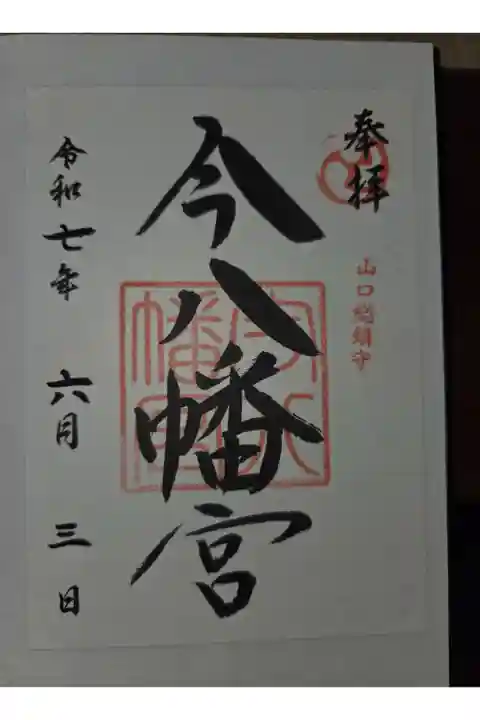 奉拝
山口総鎮守
今八幡宮
令和七年 六月 三日